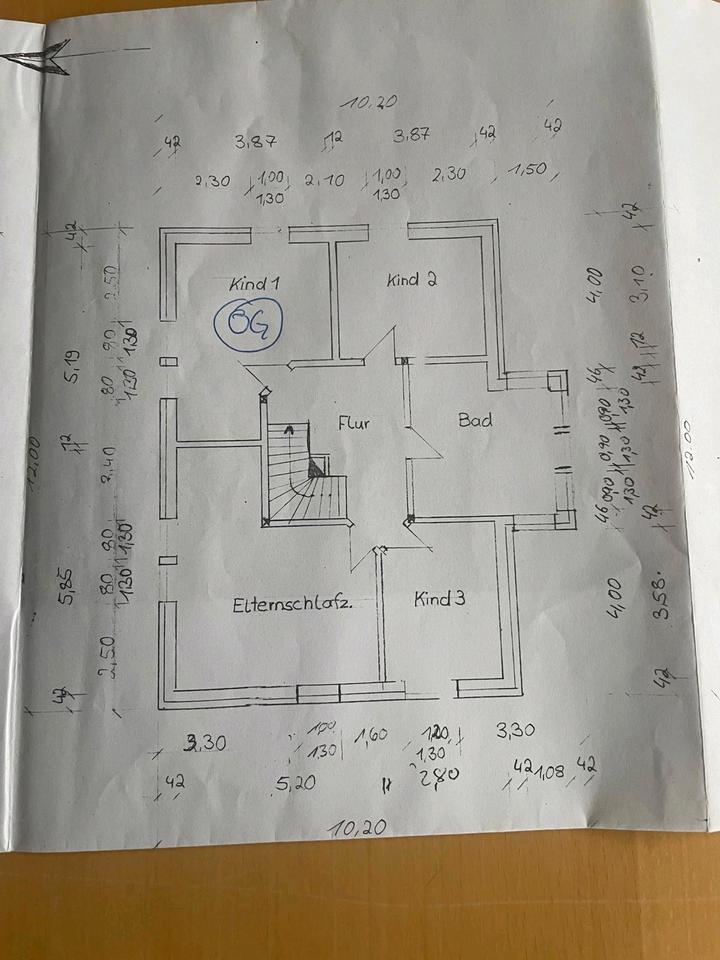 10,20
42 3,87 12 3,87 42 42
2,30 1,00 2,10 1,00 2,30 1,50
1,30 1,30
Kind 1
Kind 2
OG
Flur
Bad
Elternschlafz.
Kind 3
12,00
42 5,19 12 5,85 42
2,50 90 80 2,40 80 80 2,50
1,30 1,30 1,30 1,30
4,00 46 0,90 0,90 0,90 46 4,00
1,30 1,30 1,30
42 3,10 12 42 42 3,58 42
12.00
3,30 1,00 1,60 1,20 3,30
1,30 1,30
42 5,20 11 2,80 42 1,08 42
10,20